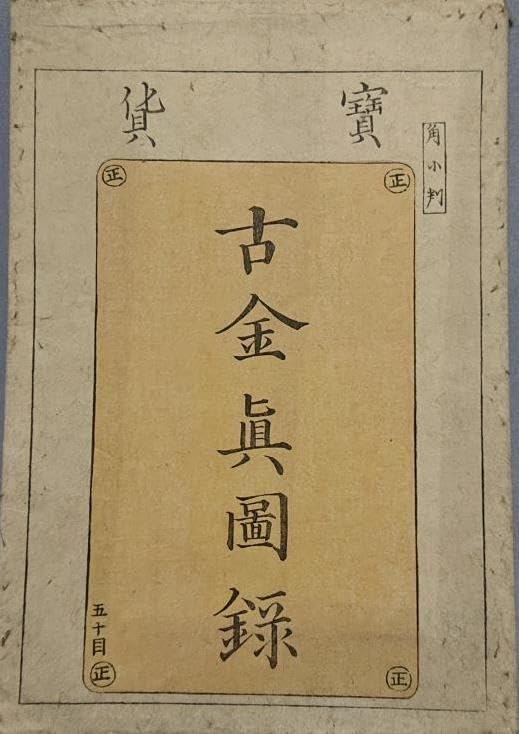 寳貨
角小判
正
正
古金眞圖錄
五十目
正
正